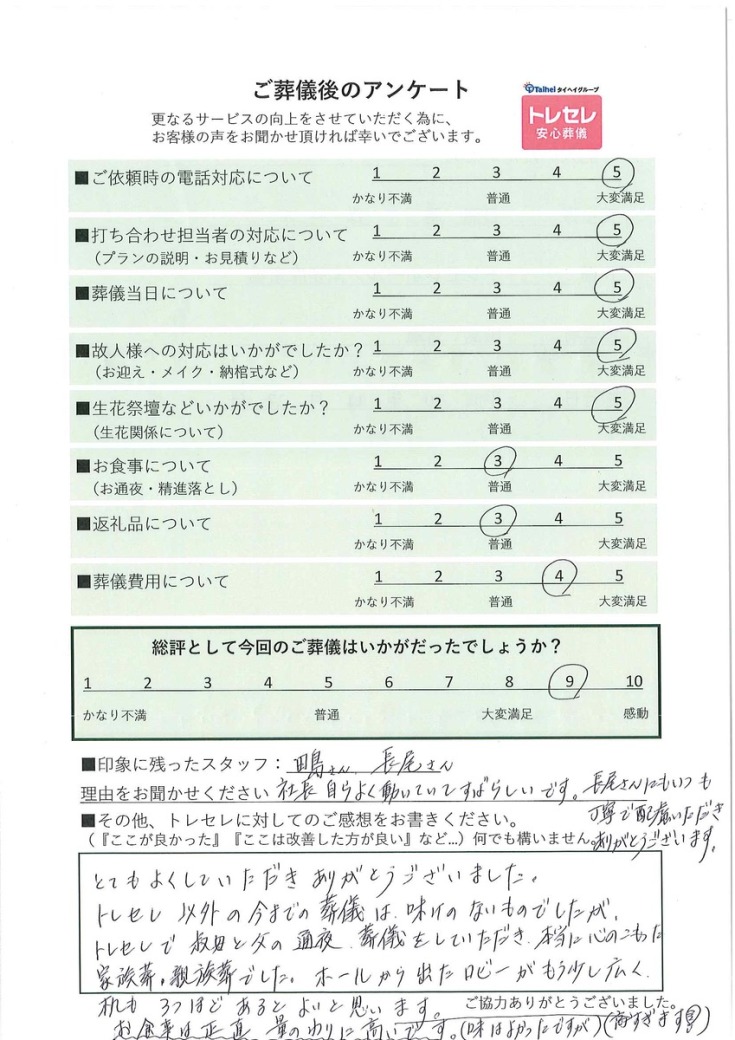 ご葬儀後のアンケート
Taihei タイヘイグループ
トレセレ
安心葬儀
更なるサービスの向上をさせていただく為に、
お客様の声をお聞かせ頂ければ幸いでございます。
■ご依頼時の電話対応について 1 2 3 4 5
かなり不満 普通 大変満足
■打ち合わせ担当者の対応について 1 2 3 4 5
（プランの説明・お見積りなど） かなり不満 普通 大変満足
■葬儀当日について 1 2 3 4 5
かなり不満 普通 大変満足
■故人様への対応はいかがでしたか？ 1 2 3 4 5
（お迎え・メイク・納棺式など） かなり不満 普通 大変満足
■生花祭壇などいかがでしたか？ 1 2 3 4 5
（生花関係について） かなり不満 普通 大変満足
■お食事について 1 2 3 4 5
（お通夜・精進落とし） かなり不満 普通 大変満足
■返礼品について 1 2 3 4 5
かなり不満 普通 大変満足
■葬儀費用について 1 2 3 4 5
かなり不満 普通 大変満足
総評として今回のご葬儀はいかがだったでしょうか？
1 2 3 4 5 6 7 8 9 10
かなり不満 普通 大変満足 感動
■印象に残ったスタッフ： さん 長尾さん
理由をお聞かせください 社長自らよく動いていてすばらしいです。長尾さんにもいつも
丁寧で配慮いただき
ありがとうございます。
■その他、トレセレに対してのご感想をお書きください。
（『ここが良かった』『ここは改善した方が良い』など…）何でも構いません。
とてもよくしていただきありがとうございました。
トレセレ以外の今までの葬儀は、味けのないものでしたが、
トレセレで叔母と父の通夜、葬儀をしていただき、本当に心のこもった
家族葬、親族葬でした。ホールから出たロビーがもう少し広く、
机も3つほどあるとよいと思います。
ご協力ありがとうございました。
お食事は正直、量のわりに高いです。(味はよかったですが)(高すぎます!)